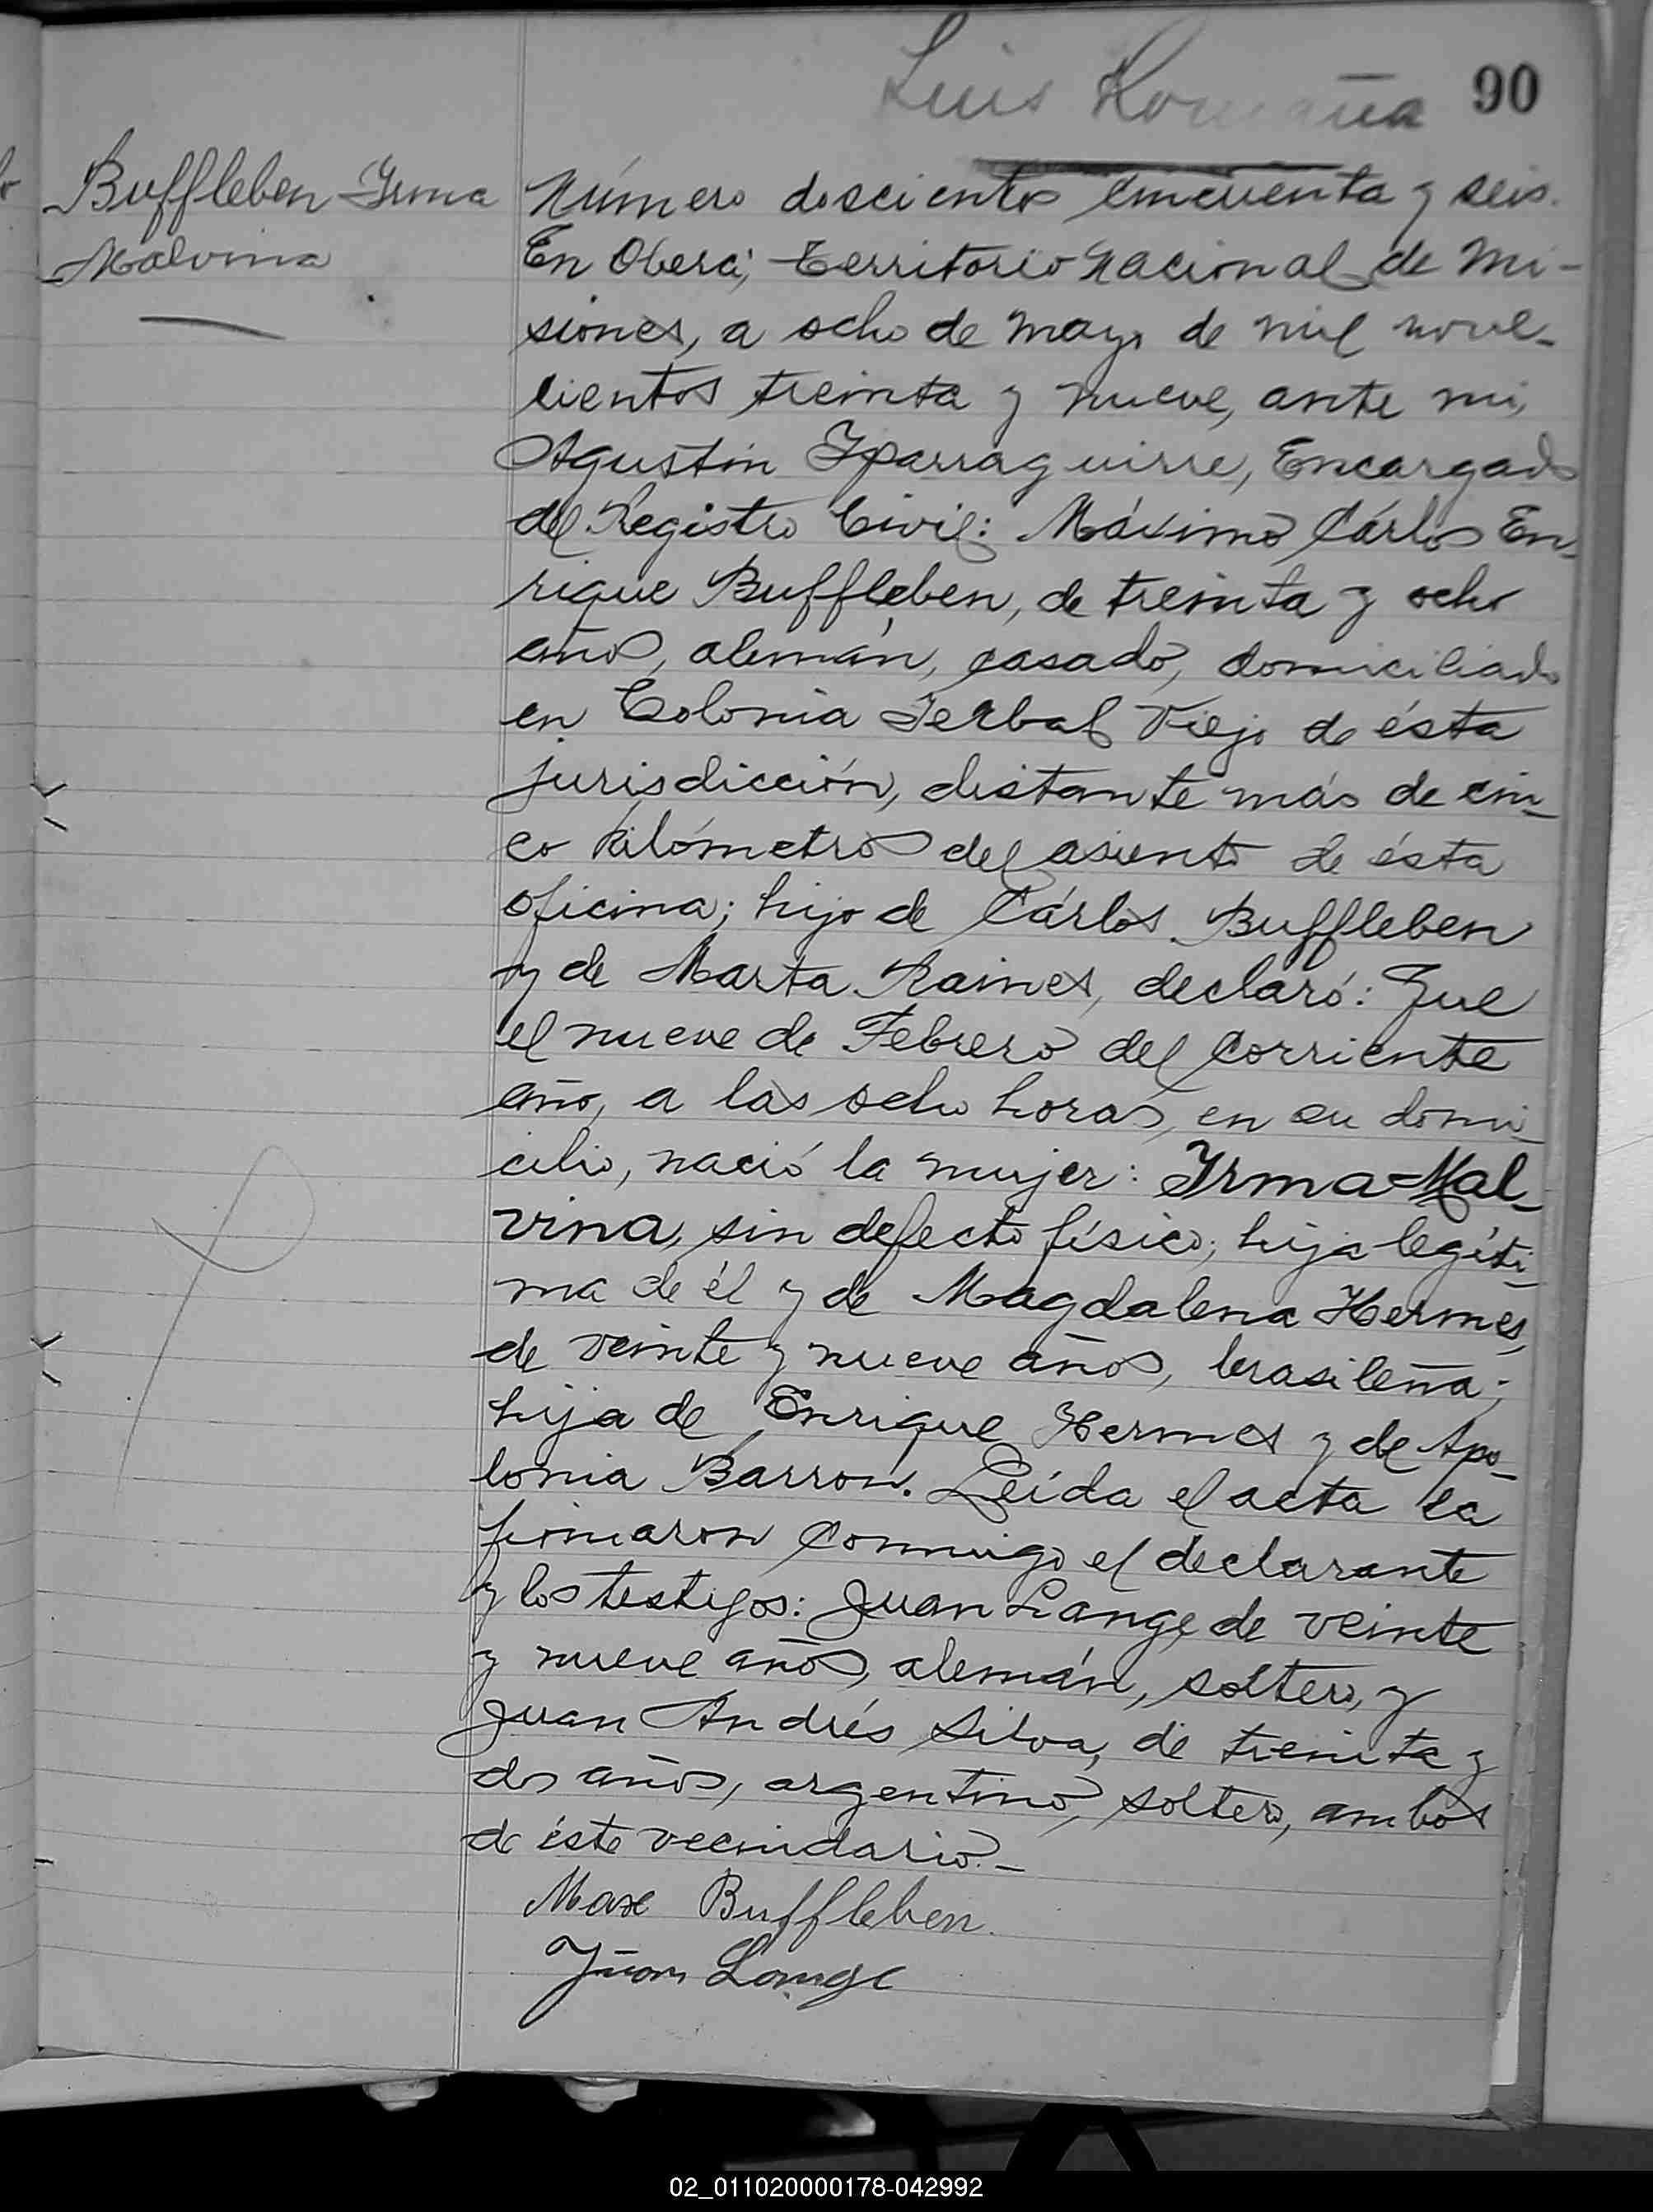 Luis
90
Buffleben Irma
Malvina
Número doscientos cincuenta y seis.
En Oberá, Territorio Nacional de Mi-
siones, a ocho de mayo de mil nove-
cientos treinta y nueve, ante mi,
Agustín Yparraguirre, Encargado
del Registro Civil: Máximo Cárlos En-
rique Buffleben, de treinta y ocho
años, alemán, casado, domiciliado
en Colonia Yerbal Viejo de ésta
jurisdicción, distante más de cin-
co kilómetros del asiento de ésta
oficina; hijo de Cárlos Buffleben
y de Marta Raines, declaró: Que
el nueve de Febrero del corriente
año, a las ocho horas, en su domi-
cilio, nació la mujer: Irma Mal-
vina, sin defecto físico; hija legíti-
ma de él y de Magdalena Hermes,
de veinte y nueve años, brasileña;
hija de Enrique Hermes y de Apo-
lonia Barron. Leída el acta la
firmaron conmigo el declarante
y los testigos: Juan Lange de veinte
y nueve años, alemán, soltero, y
Juan Andrés Silva, de treinta y
dos años, argentino, soltero, ambos
de éste vecindario.-
Max Buffleben.
Juan Lange
02_011020000178-042992